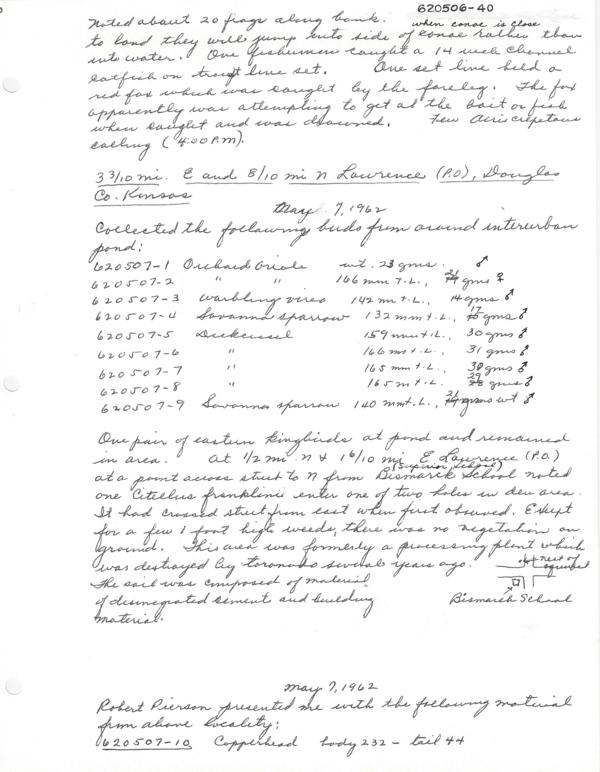 620506-40
Noted about 20 frogs along bank. when canoe is close
to land they will jump into side of canoe rather than
into water. One fisherman caught a 14 inch channel
catfish on trout line set. One set line held a
red fox which was caught by the foreleg. The fox
apparently was attempting to get at the bait or fish
when caught and was drowned. Few Acris crepitans
calling (4:00 P.M).
3 3/10 mi. E and 8/10 mi N Lawrence (P.O), Douglas
Co. Kansas
May 7, 1962
Collected the following birds from around interurban
pond:
620507-1 Orchard Oriole wt. 23 gms. ♂
620507-2 " " 166 mm T.L., 21 gms ♀
620507-3 Warbling vireo 142 m t.L., 14 gms ♂
620507-4 Savanna sparrow 132 mm t.L., 17 gms ♂
620507-5 Dickcissel 159 mm t.L., 30 gms ♂
620507-6 " 166 mm t.L., 31 gms ♂
620507-7 " 165 mm t.L., 30 gms ♂
620507-8 " 165 m t.L., 29 gms ♂
620507-9 Savanna sparrow 140 mm t.L., 21 grams wt ♂
One pair of eastern kingbirds at pond and remained
in area. At 1/2 mi. N & 1 6/10 mi. E. Lawrence (P.O.)
(Superior School)
at a point across street to N from Bismarck School noted
one Citellus franklinii enter one of two holes in den area.
It had crossed street from east when first observed. Except
for a few 1 foot high weeds, there was no vegetation on
ground. This area was formerly a processing plant which
was destroyed by toronado several years ago. nest of
The soil was composed of material squirrel
of disinegrated cement and building Bismarck School
material.
May 7, 1962
Robert Pierson presented me with the following material
from above locality:
620507-10 Copperhead body 232 - tail 44